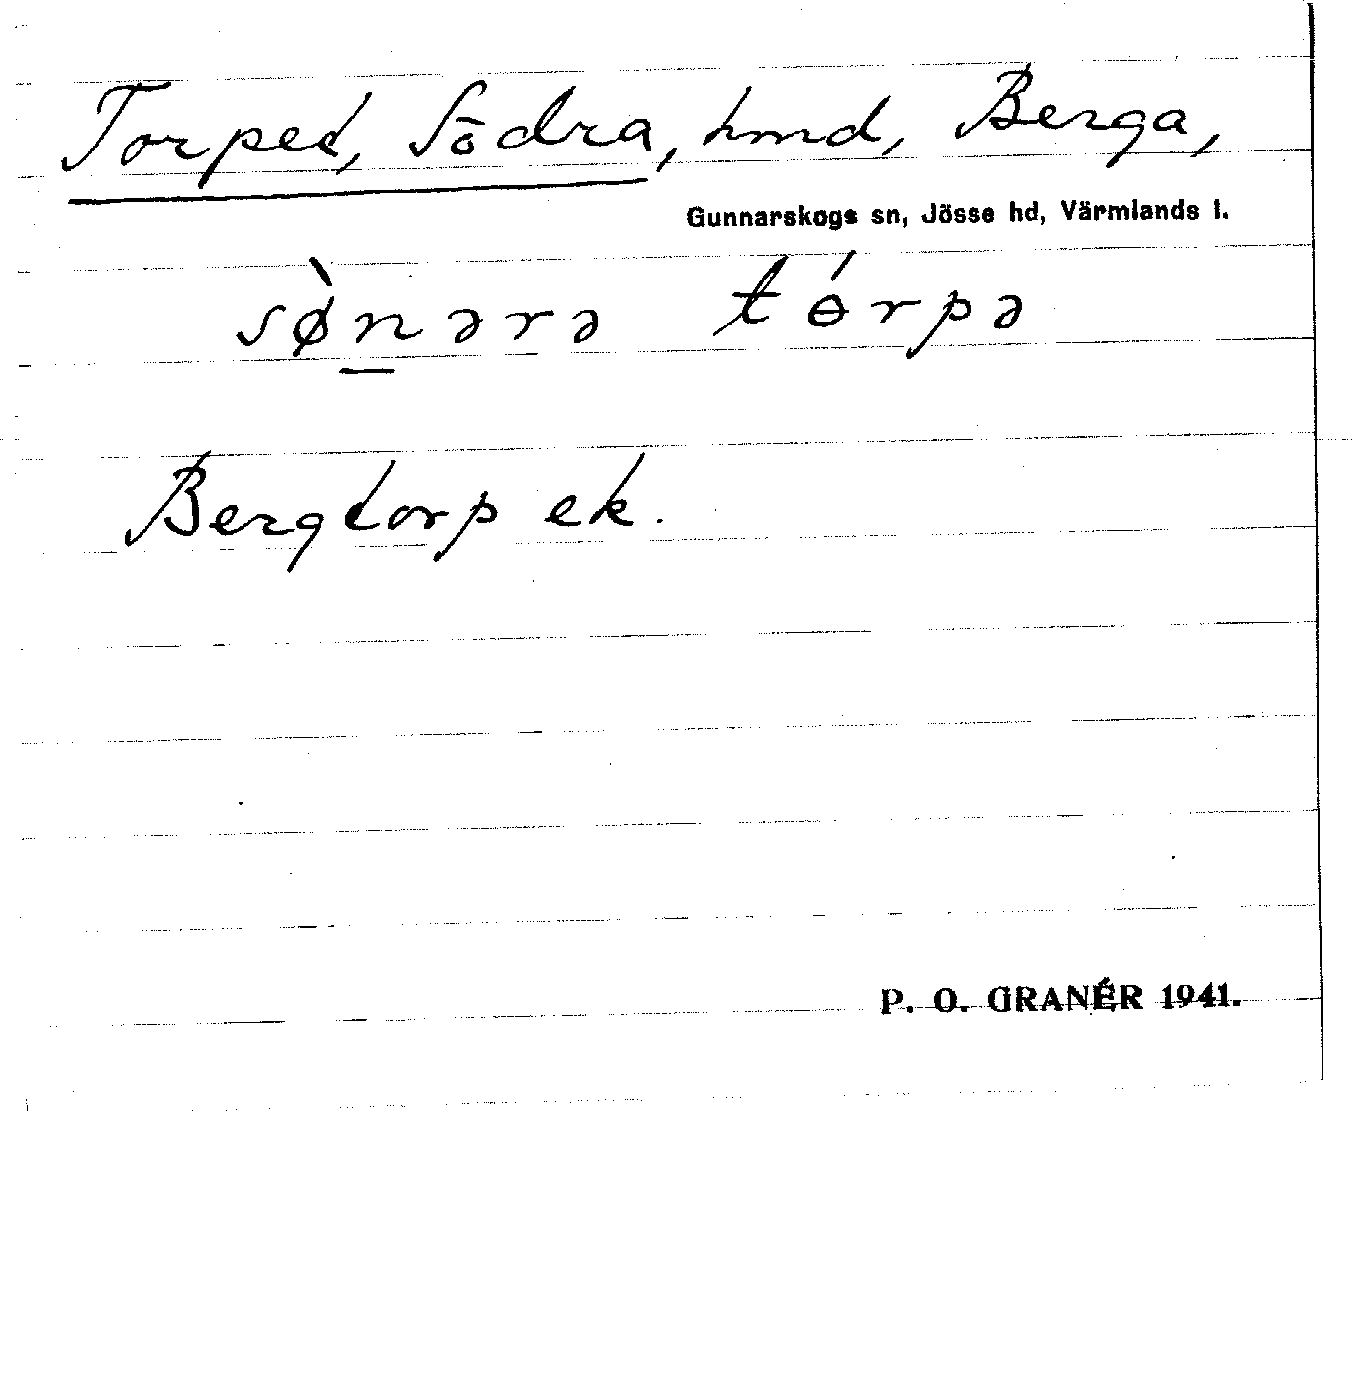 Torpet, Södra, hmd, Berga,
Gunnarskogs sn, Jösse hd, Värmlands l.
sø̀nərə tɵ́rpə
Bergtorp ek.
P. O. GRANÉR 1941.